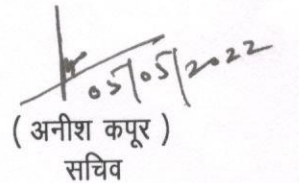 05/05/2022
( अनीश कपूर )
सचिव